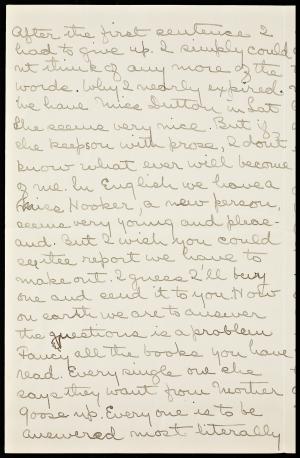 After the first sentence I
had to give up. I simply could
nt think of any more of the
words. Why I nearly expired.
We have Miss Sutton in Lat
She seems very nice. But if
she keeps on with prose, I dont
know what ever will become
of me. In English we have a
Miss Hooker, a new person,
seems very young and pleas-
and. But I wish you could
see the report we have to
make out. I guess I'll buy
one and send it to you. How
on earth we are to answer
the questions is a problem
Fancy all the books you have
read. Every single one she
says they want from Mother
Goose up. Everyone is to be
answered most literally